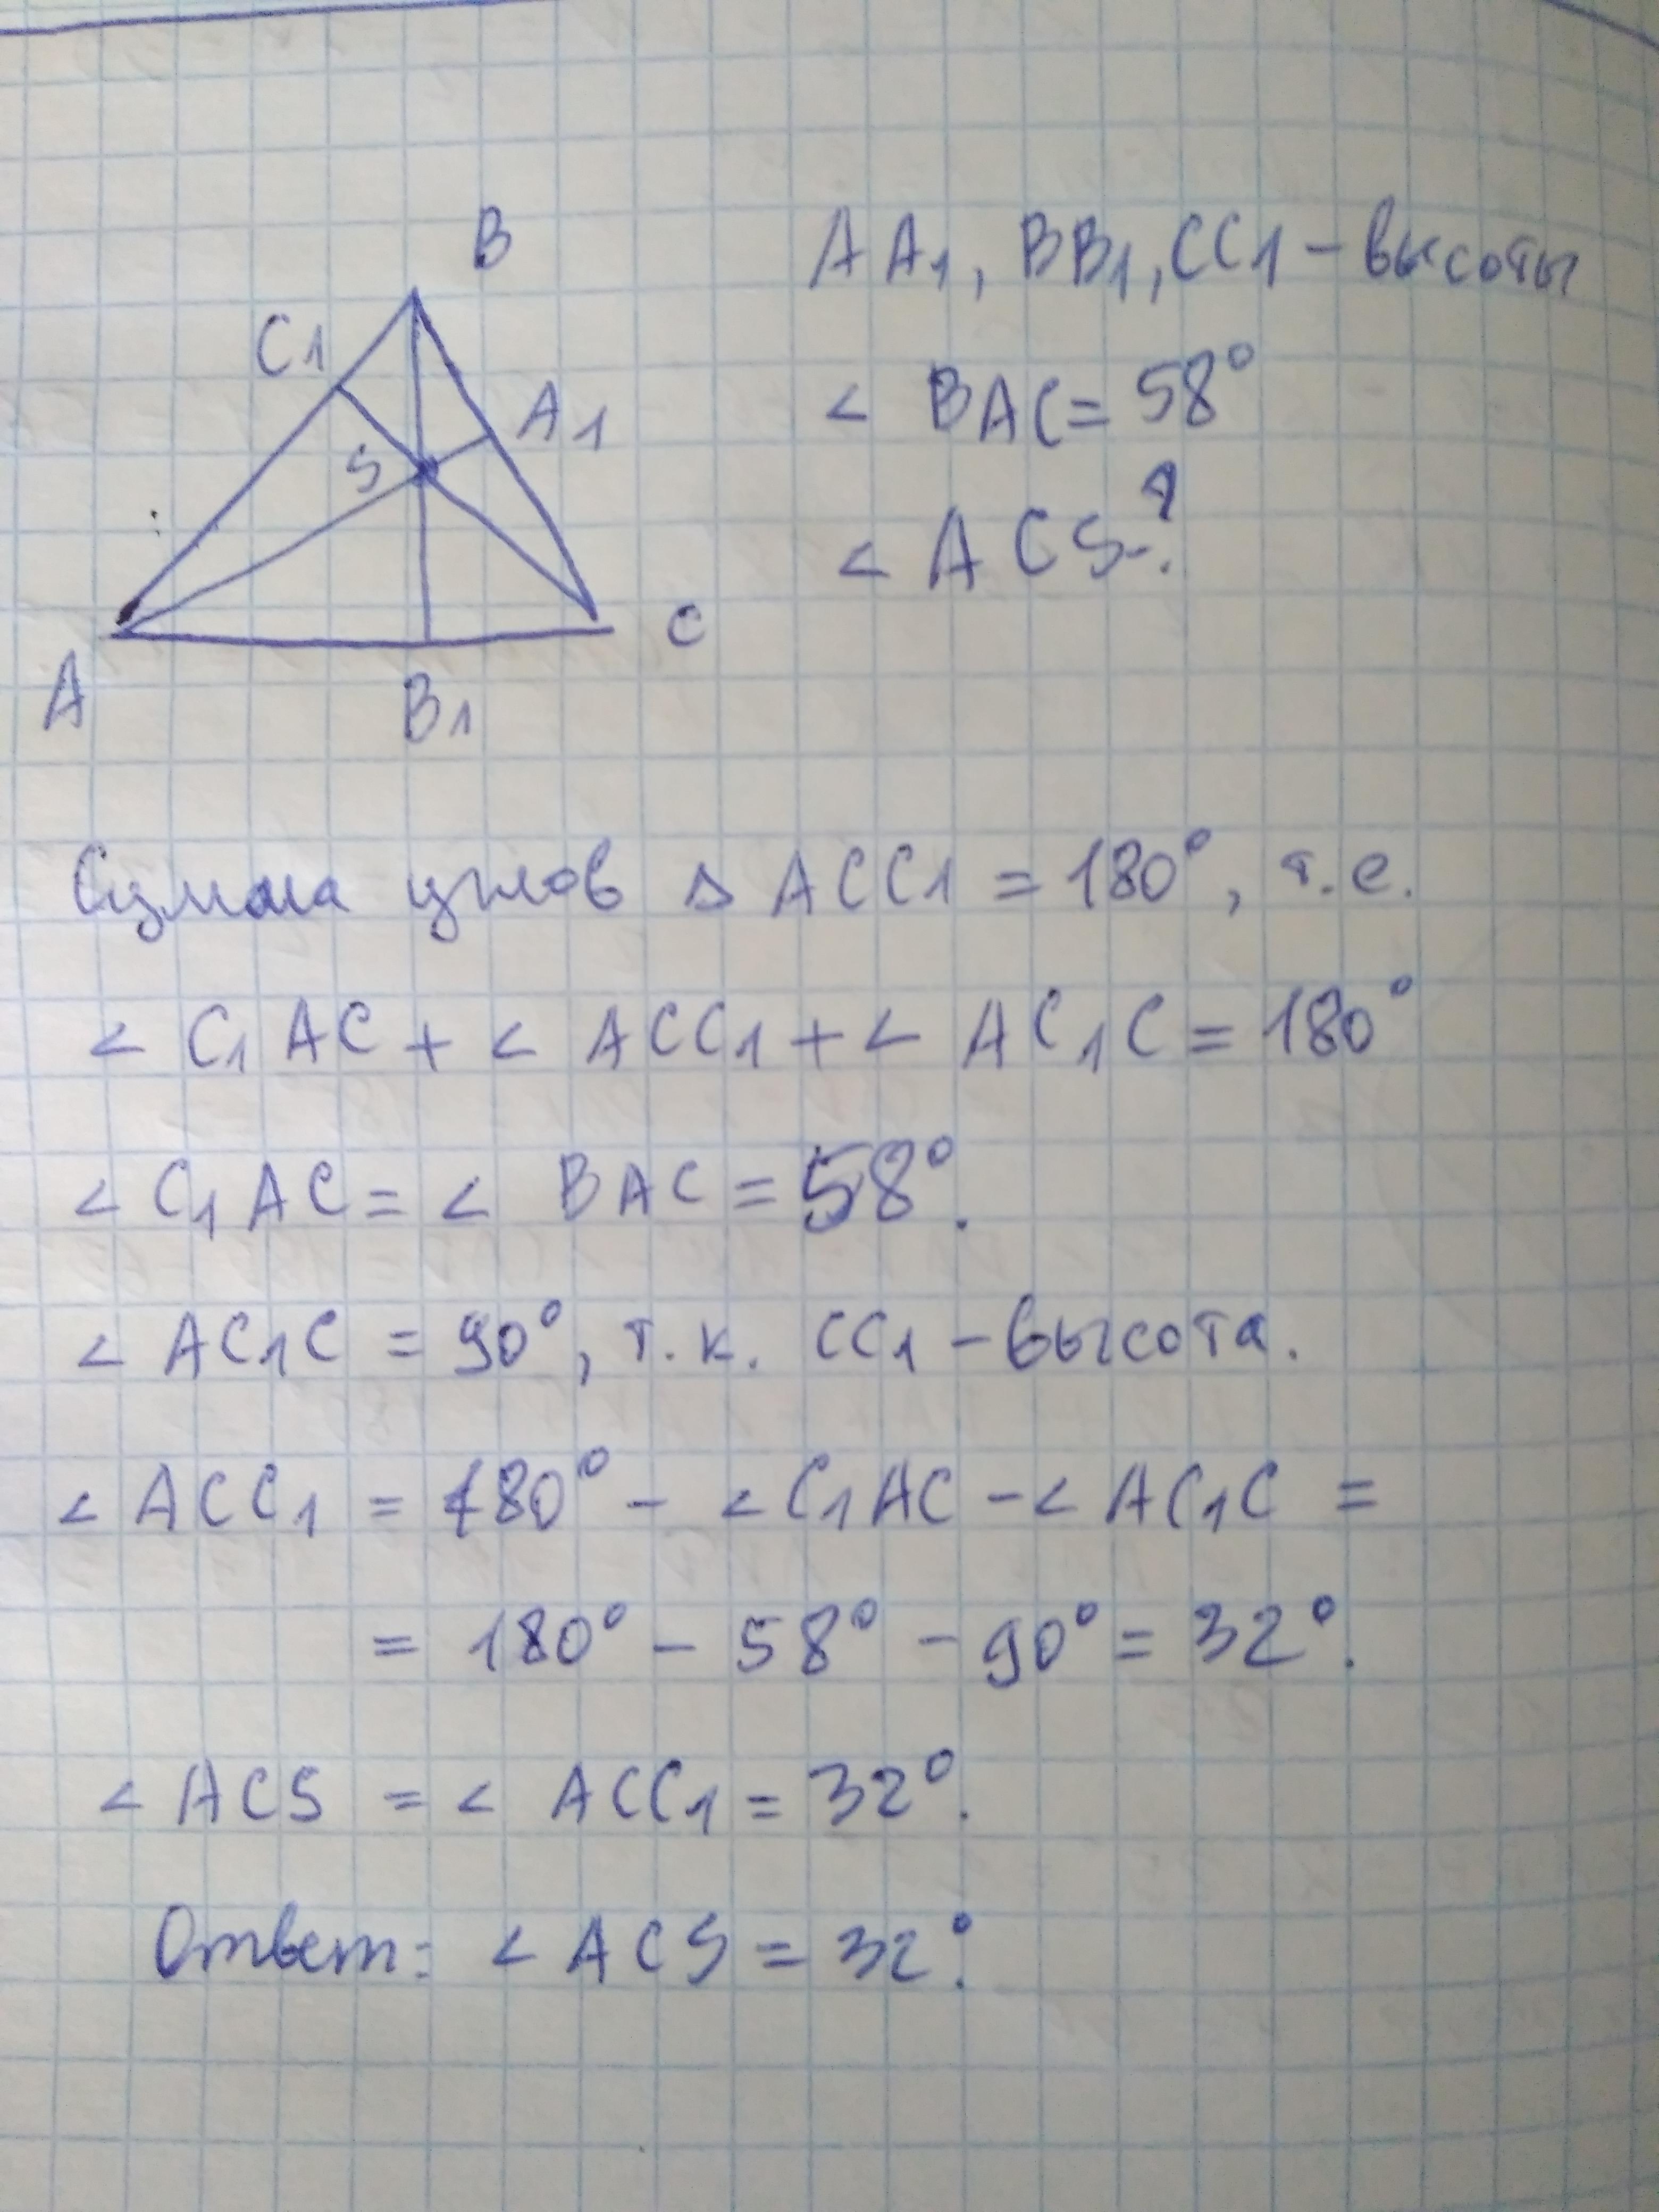 B
AA1, BB1, CC1 – высоты
C1
A1
< BAC = 58°
S
< ACS-?
A
C
B1
Сумма углов ▵ ACC1 = 180°, т.е.
< C1AC + < ACC1 + < AC1C = 180°
< C1AC = < BAC = 58°.
< AC1C = 90°, т.к. CC1 – высота.
< ACC1 = 180° – < C1AC – < AC1C =
= 180° – 58° – 90° = 32°.
< ACS = < ACC1 = 32°.
Ответ: < ACS = 32°.